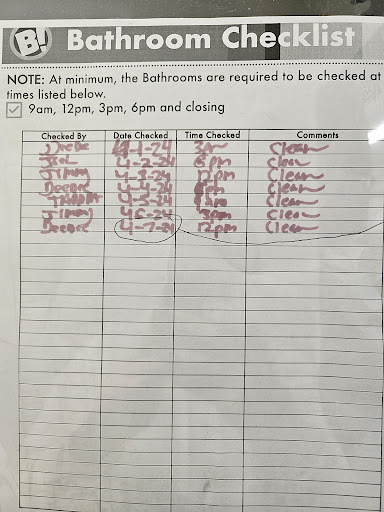 B! Bathroom Checklist
NOTE: At minimum, the Bathrooms are required to be checked at
times listed below.
9am, 12pm, 3pm, 6pm and closing
Checked By Date Checked Time Checked Comments
4-1-24 3pm Clean
4-2-24 6pm Clean
Jimmy 4-3-24 12pm Clean
Deedee 4-4-24 Clean
4-5-24 9am Clean
Jimmy 4-6-24 3pm Clean
Deedee 4-7-24 12pm Clean